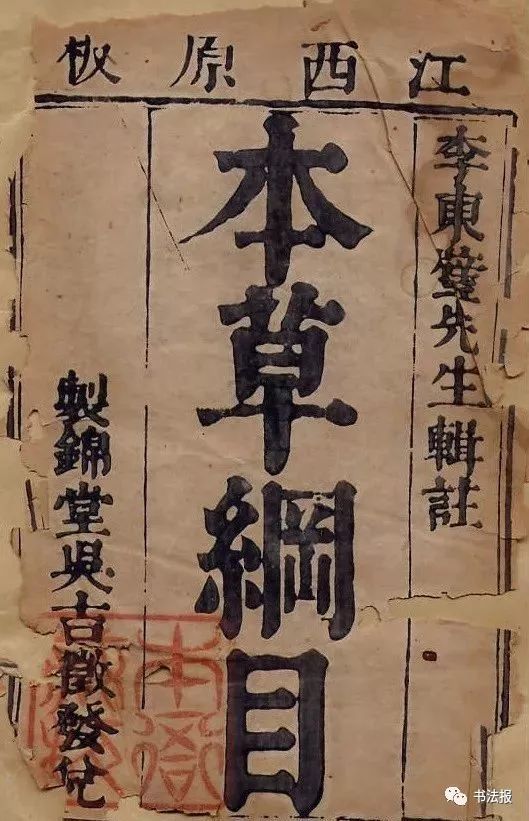 江西原板
李東璧先生輯註
本草綱目
製錦堂吳吉徵發兌
书法报